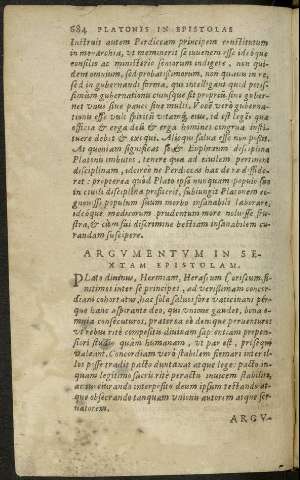 684 PLATONIS IN EPISTOLAS
Instruit autem Perdiccam principem constitutum
in monarchia, vt meminerit se iuuenem esse ideóque
consilio ac ministerio seniorum indigere, non qui-
dem omnium, sed probatissimorum, non quauis in re,
sed in gubernandi forma, qui intelligant quid pos-
simum gubernationi cuiusque sit proprium, siue guber-
net vnus siue pauci siue multi. Vocē verò gubernati-
onis esse vult spiritū vitamq́ue eius, id est leges quæ
officia & erga deū & erga homines congrua insti-
tuere debēt & exequi. Aliàs salua esse non posse.
At quoniam significat se Euphræum disciplina
Platonis imbutus, tenere quæ ad ciuilem pertinent
disciplinam, idcirco ne Perdiccas hac de re diffide-
ret: propterea quòd Plato ipse nunquam populo suo
in ciuili disciplina profuerit, subiungit Platonem co-
gnouisse populum suum morbo insanabili laborare,
ideóque medicorum prudentum more noluisse fru-
stra, & cùm sui discrimine bestiam insanabilem cu-
randam suscipere.
ARGVMENTVM IN SE-
XTAM EPISTOLAM.
Plato diuinus, Hermiam, Herastum & Coriscum, fi-
nitimos inter se principes, ad verissimam concor-
diam cohortatur, hac sola salutis fore vaticinans per-
que hanc aspirante deo, qui vnione gaudet, bona o-
mnia consecuturos, præterea ob denique præsentiores
vt rebus ritè compositis diuinam sapientiam propen-
siori studio quàm humanam, vt par est, prosequi
valeant. Concordiam verò stabilem fieri inter il-
los posse tradit pacto duntaxat atque lege: pacto in-
quam legitimo sacris ritè peractis inuicem stabilito,
ac iureiurando interposito deum ipsum testando at-
que obsecrando tanquam vnionis autorem atque ser-
uatorem.
ARGV-